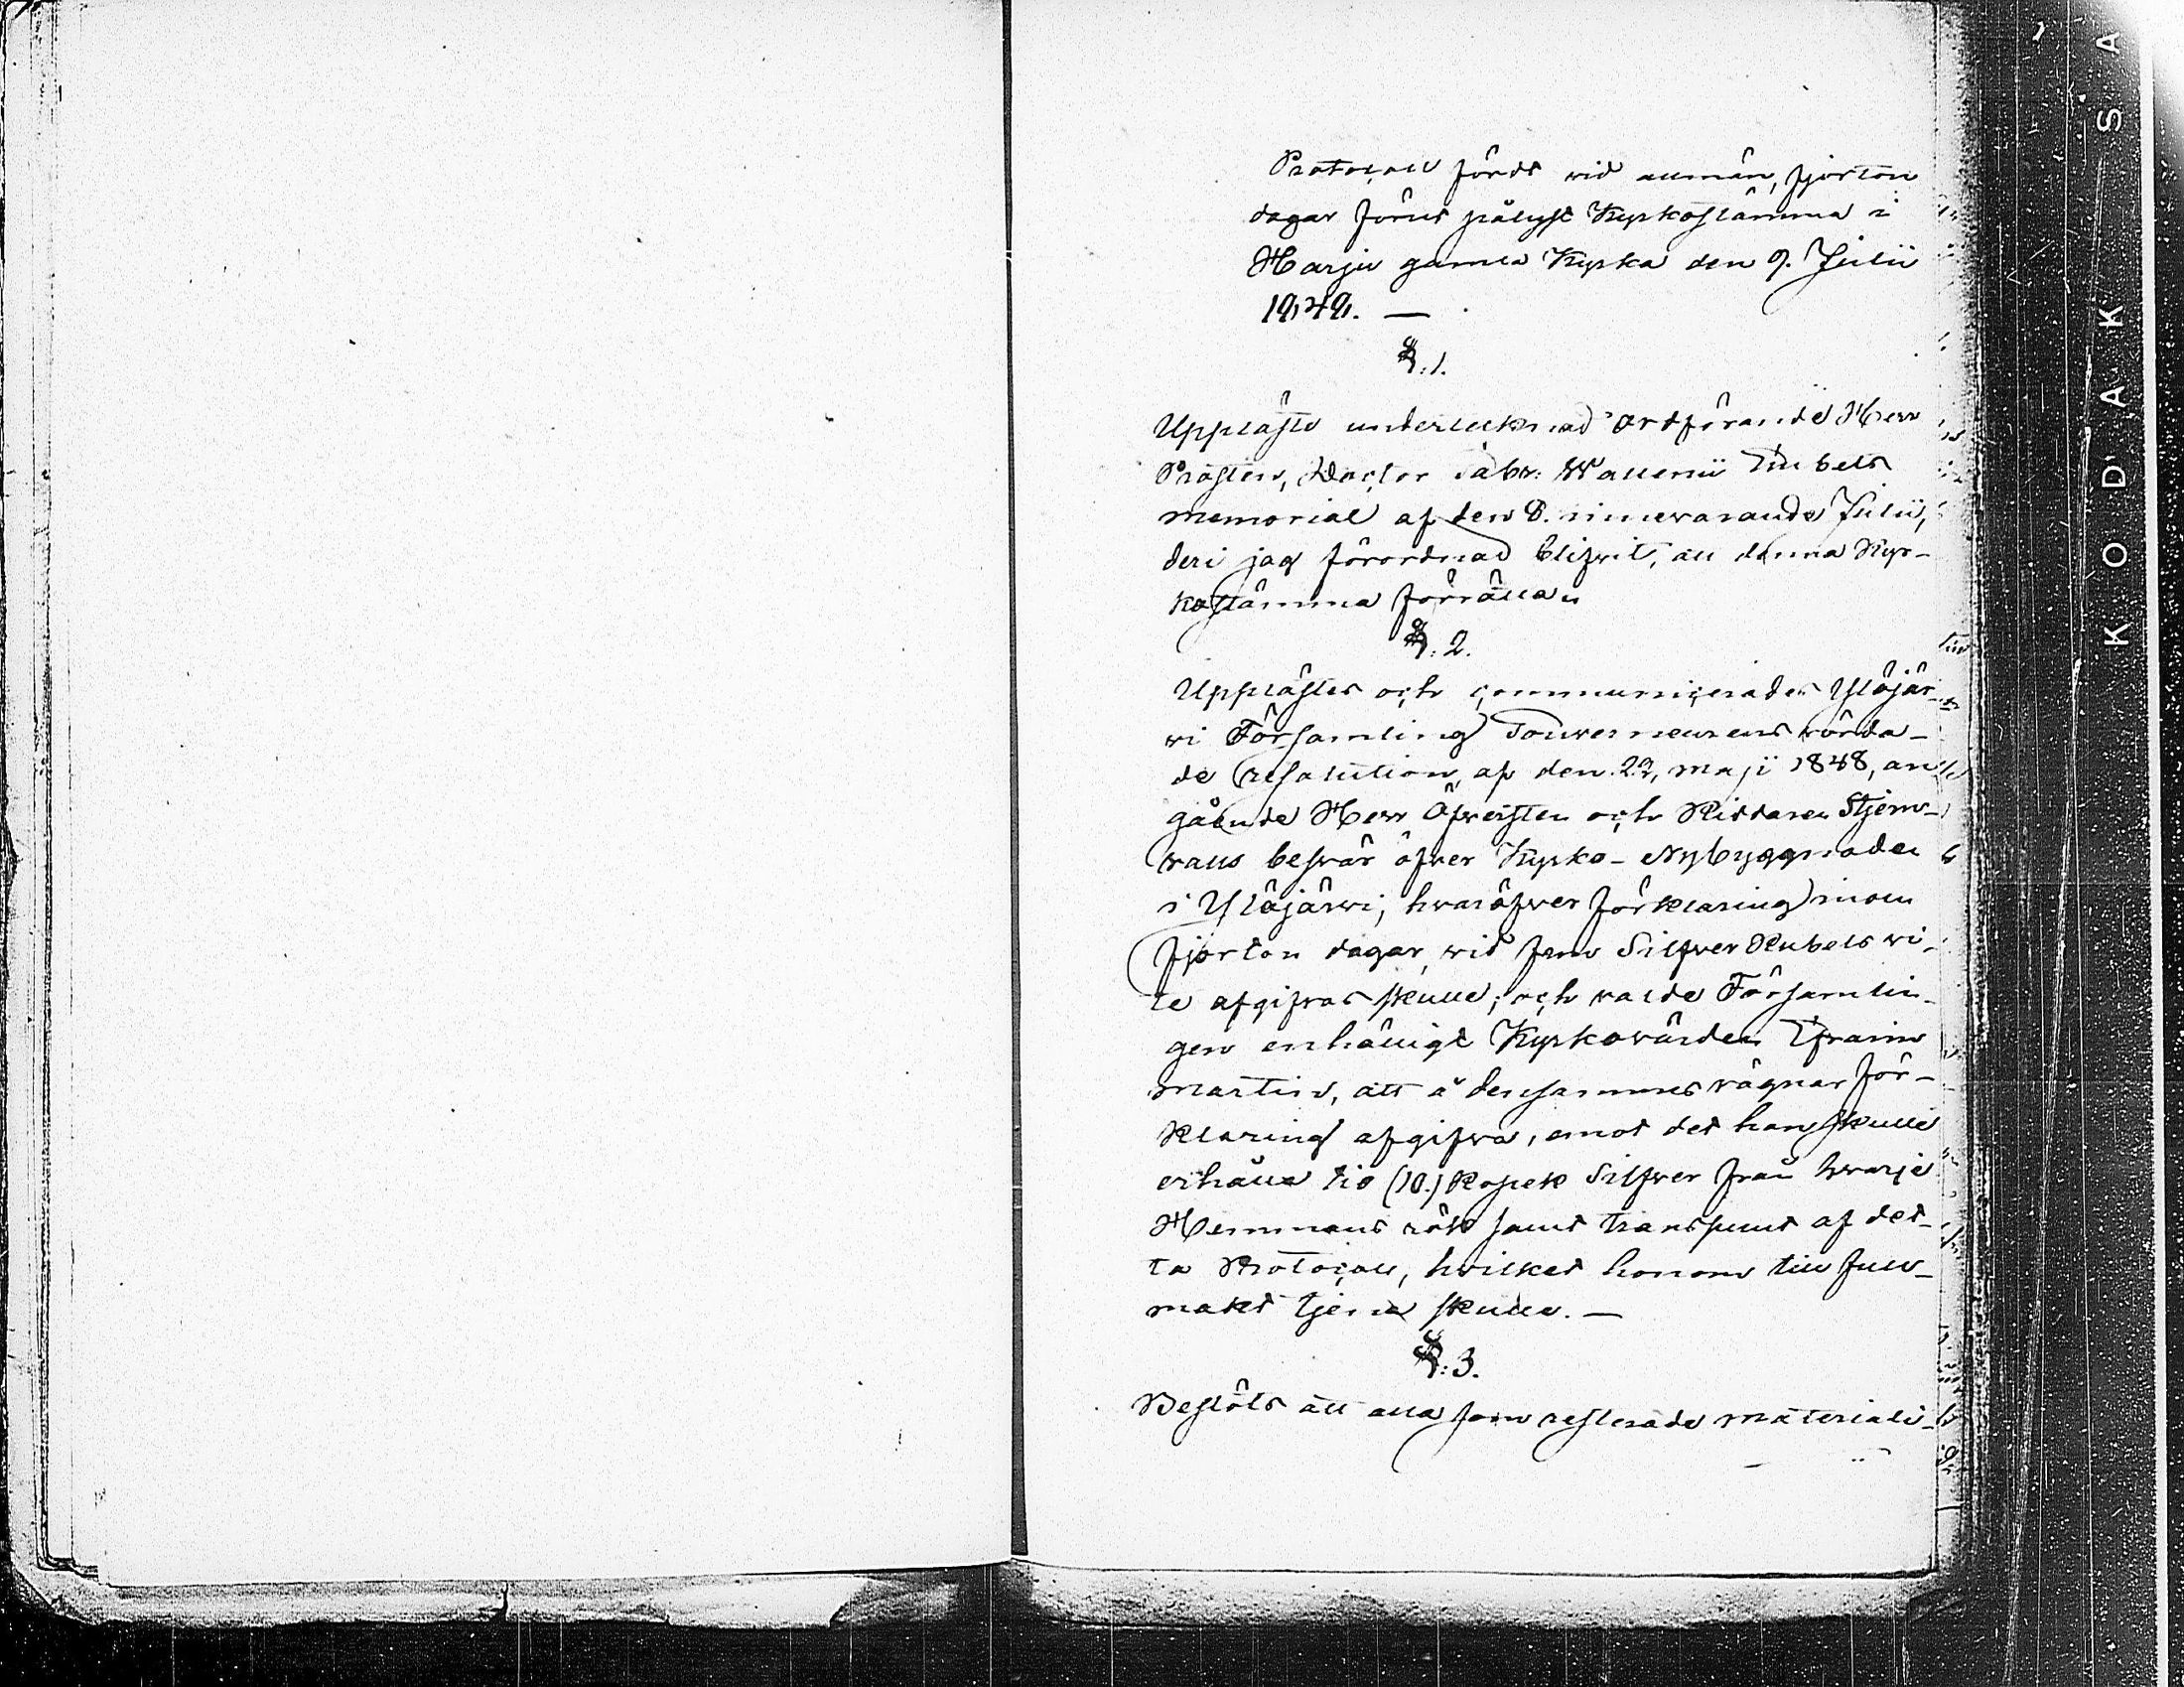 Protocoll fördt wid allmän, fjorton
dagar förut pålyst Kyrkostämma i
Harju gamla Kyrka den 9. Julii
1848. —
§. 1.
Upplästs undertecknad Ordförande Herr
Prosten, Doctor Gabr: Wallenii Til bels
memorial af den 8. innevarande Julii,
deri jag förordnad blifvit, att denna Kyr-
kostämma förrätta.
§. 2.
Upplästes och communicerades Ylöjär-
wi Församling Gouverneurens vörda-
de resolution, af den 22, Maji 1848, an
gående Herr Öfversten och Riddaren Stjern-
valls besvär öfver Kyrko-Nybyggnaden
i Ylöjärwi, hvaröfver förklaring inom
fjorton dagar, wid fem Silfver Rubels wi-
te afgifvas skulle; och valde Församlin-
gen enhälligt Kyrkovärden Efraim
Martin, att å densammes vägnar för-
klaring afgifva, emot det han skulle
erhålla tio (10.) Kopek Silfver från hvarje
Hemmans rök samt transsumt af det-
ta Protocoll, hvilket honom till full-
makt tjena skulle. —
§: 3.
Beslöts att alla som resterade materiali-